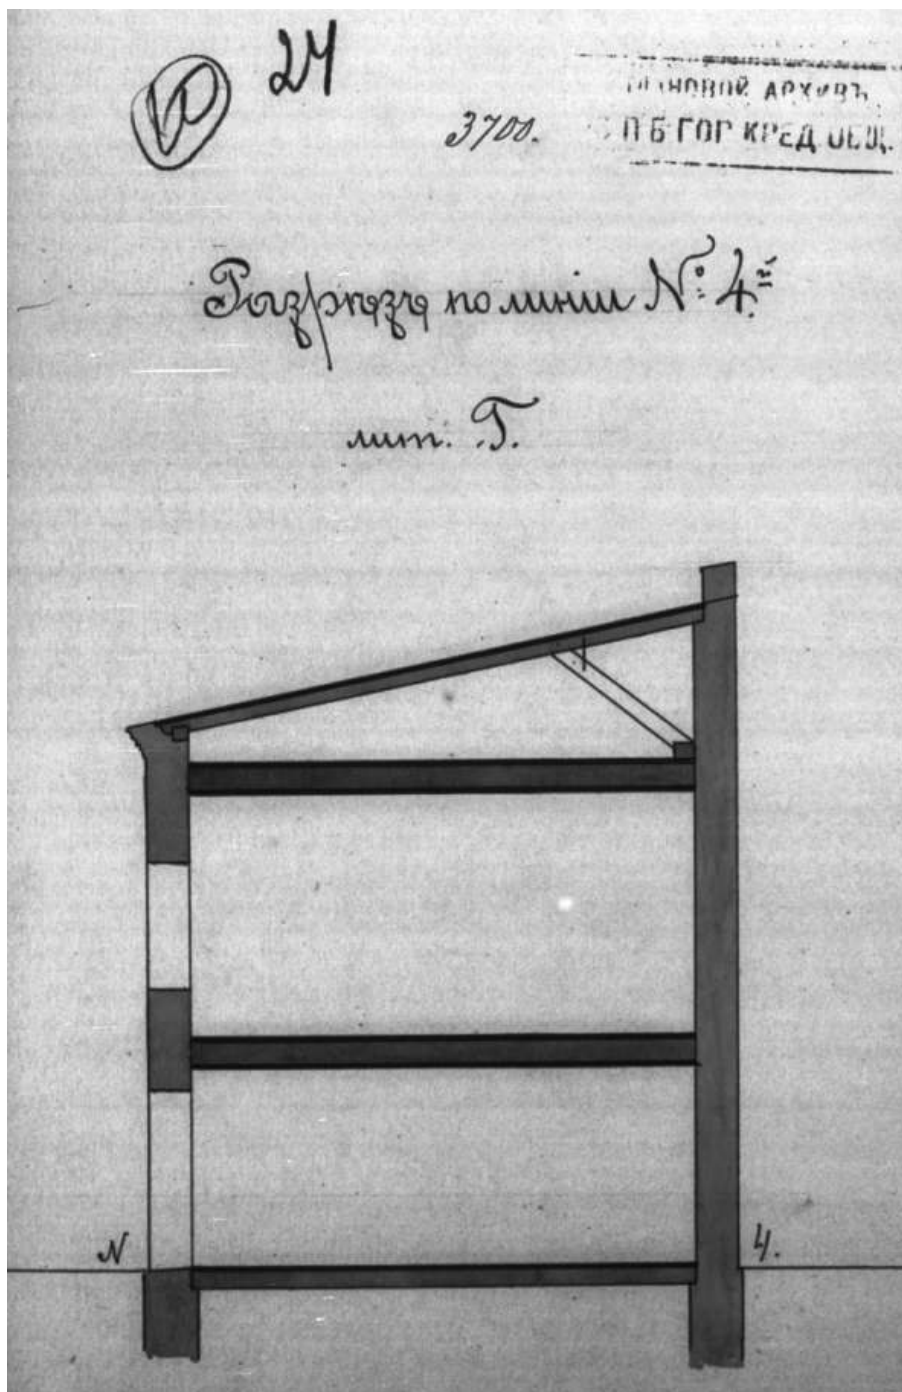 24
3700.
АРХИВЪ
ГОР КРЕД
Разрѣзъ по линіи № 4.й
лит. Г.
N 4.